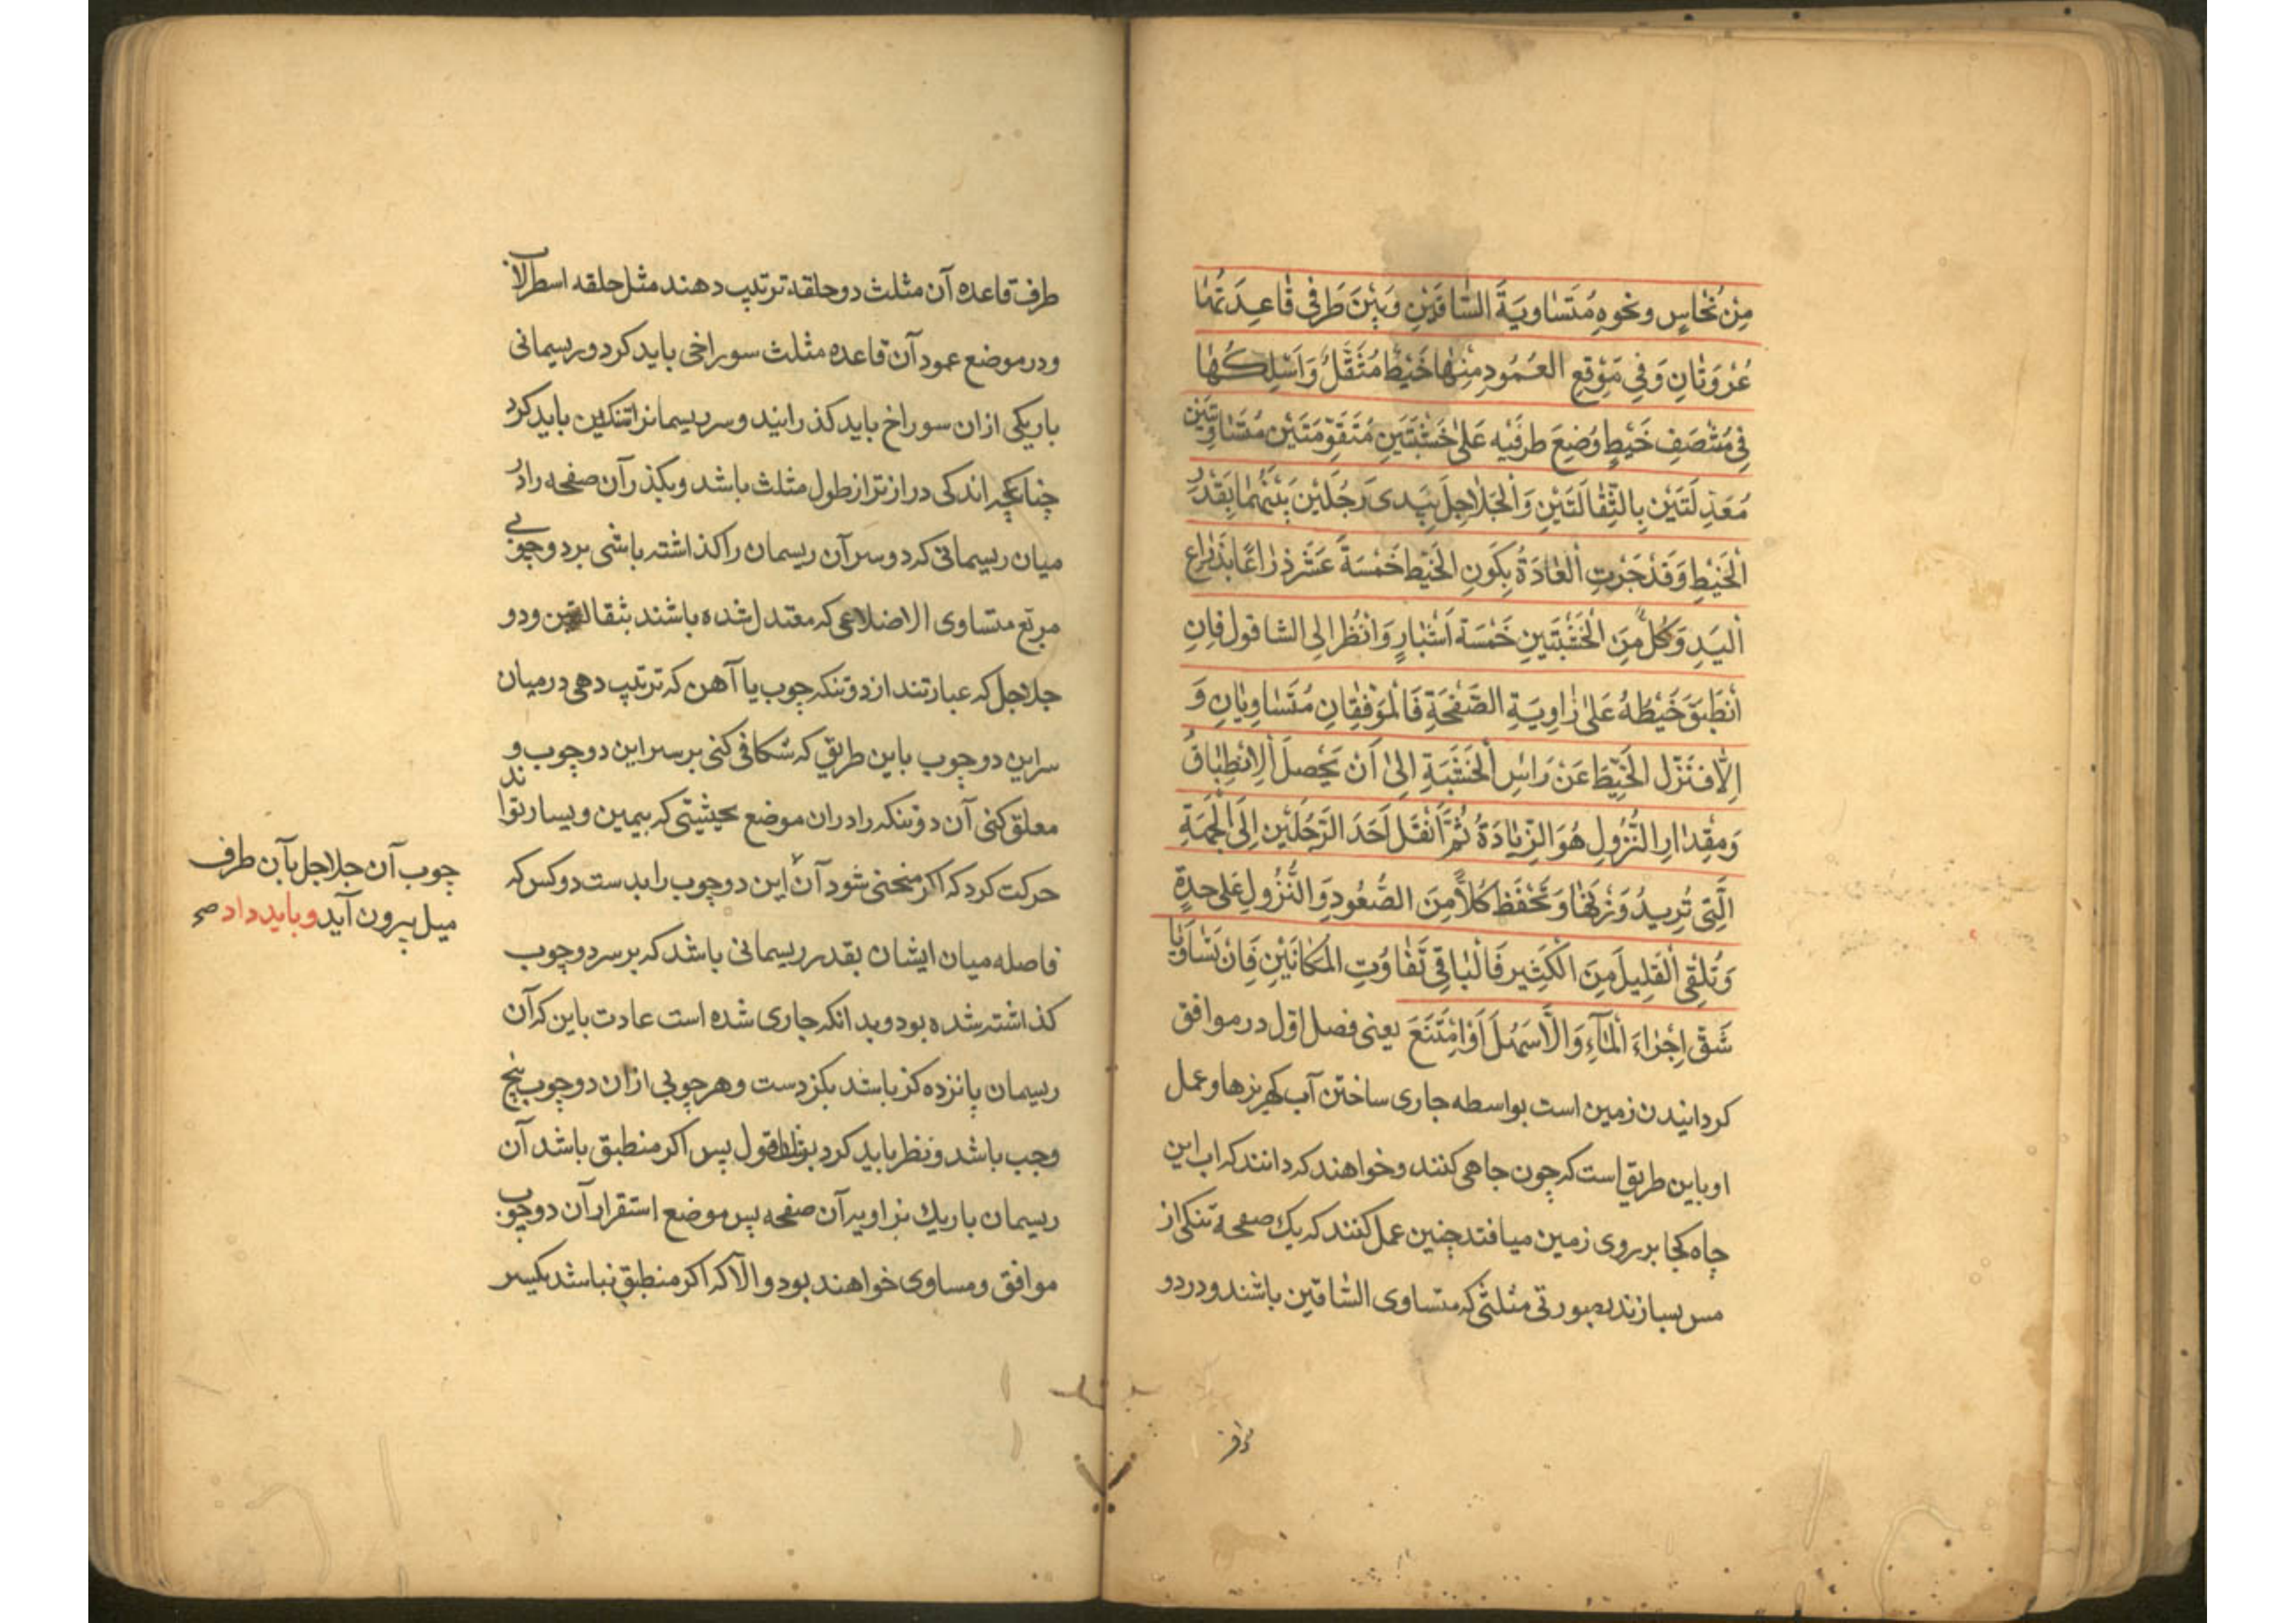 مِنْ نُحٰاسٍ ونحوِهِ مُتَسٰاوِيَةَ السّٰاقَيْنِ وَبَيْنَ طَرَفَي قٰاعِدَتِهٰا
عُرْوَتٰانِ وَفِي مَوْقِعِ العَمُودِ مِنْهٰا خَيْطٌ مُثَقَّلٌ وَاَسْلِكْهٰا
فِي مُنْتَصَفِ خَيْطٍ وُضِعَ طرفَيْهِ عَلىٰ خَشَبَتَيْنِ مُتَقَوِّمَتَيْنِ مُتَسٰاوِيَتَيْنِ
مُعَدِّلَتَيْنِ بِالثِّقٰالَتَيْنِ وَالْجَلاٰجِلَ بِيَدَى رَجُلَيْنِ بَيْنَهُمٰا بِقَدْرِ
اَلْخَيْطِ وَقَدْ جَرَتِ اَلْعٰادَةُ بِكَوْنِ الْخَيْطِ خَمْسَةَ عَشَرَ ذِرٰاعًا بِذِرٰاعِ
اَليَدِ وَكُلٌّ مِنَ الْخَشَبَتَيْنِ خَمْسَةَ اَشْبٰارٍ وَانْظُر اِلى الشاقول فَاِنِ
انْطَبَقَ خَيْطُهُ عَلىٰ زٰاوِيَةِ الصَّفْحَةِ فَالْمَوْقِفٰانِ مُتَسٰاوِيٰانِ وَ
اِلّاٰ فَنَزِّل الْخَيْطَ عَنْ رَاسِ الْخَشَبَةِ اِلىٰ اَنْ يَحْصلَ الْاِنْطِبٰاقُ
وَمِقْدٰارِ النُّزُولِ هُوَ الزِّيٰادَةُ ثُمَّ اَنْقُلْ اَحَدَ الرَّجُلَيْنِ اِلَى الْجِهَةِ
الَّتِى تُرِيدُ وَزْنَهٰا وَتَحْفَظ كُلاًّ مِنَ الصُّعُودِ وَالنُّزُولِ عَلىٰ حِدَةٍ
وَتُلْقِى الْقَلِيلَ مِنَ الْكَثِيرِ فَالْبٰاقِى تَفٰاوُتِ المَكٰانَيْنِ فَاِنْ تَسٰاوَيٰا
شَقَّ اِجْرٰاءَ الْمٰآءِ وَاِلّاٰ سَهُلَ اَوْ اِمْتَنَعَ يعنى فصل اوّل در موافق
كردانيدن زمين است بواسطه جارى ساختن آب كهريزها وعمل
او باين طريق است كه چون چاهى كنند وخواهند كه دانند كه اب اين
چاه كجا بر روى زمين ميافتد چنين عمل كنند كه يك صفحۀ تنكى از
مس بسازند بصورتى مثلثى كه متساوى الساقين باشند ودر دو
طرف قاعده آن مثلث دو حلقه ترتيب دهند مثل حلقه اسطرلاب
ودر موضع عمود آن قاعده مثلث سوراخى بايد كرد وريسمانى
باريكى ازان سوراخ بايد كذرانيد وسر ريسمانرا تنكين بايد كرد
چنانچه اندكى درازتر از طول مثلث باشد وبكذر آن صفحه را در
ميان ريسمانى كرد وسر آن ريسمان را كذاشته باشى بر دو چوبى
مربّع متساوى الاضلاعى كه معتدل شده باشند بثقالتين ودو
جلاجل كه عبارتند از دو تنكه چوب يا آهن كه ترتيب دهى در ميان
سر اين دو چوب باين طريق كه شكافى كنى بر سر اين دو چوب و
معلق كنى آن دو تنكه را دران موضع بحيثيتى كه بيمين ويسار تواند
حركت كرد كه اكر منحنى شود آن اين دو چوب را بدست دو كس كه
چوب آن جلاجل بآن طرف
ميل بيرون آيد وبايد داد صح
فاصله ميان ايشان بقدر ريسمانى باشد كه بر سر دو چوب
كذاشته شده بود وبدانكه جارى شده است عادت باين كه آن
ريسمان پانزده كز باشد بكز دست وهر چوبى ازان دو چوب پنج
وجب باشد ونظر بايد كرد بشاقول پس اكر منطبق باشد آن
ريسمان باريك بزاويه آن صفحه پس موضع استقرار آن دو چوب
موافق ومساوى خواهند بود والّا كه اكر منطبق نباشد يكسر